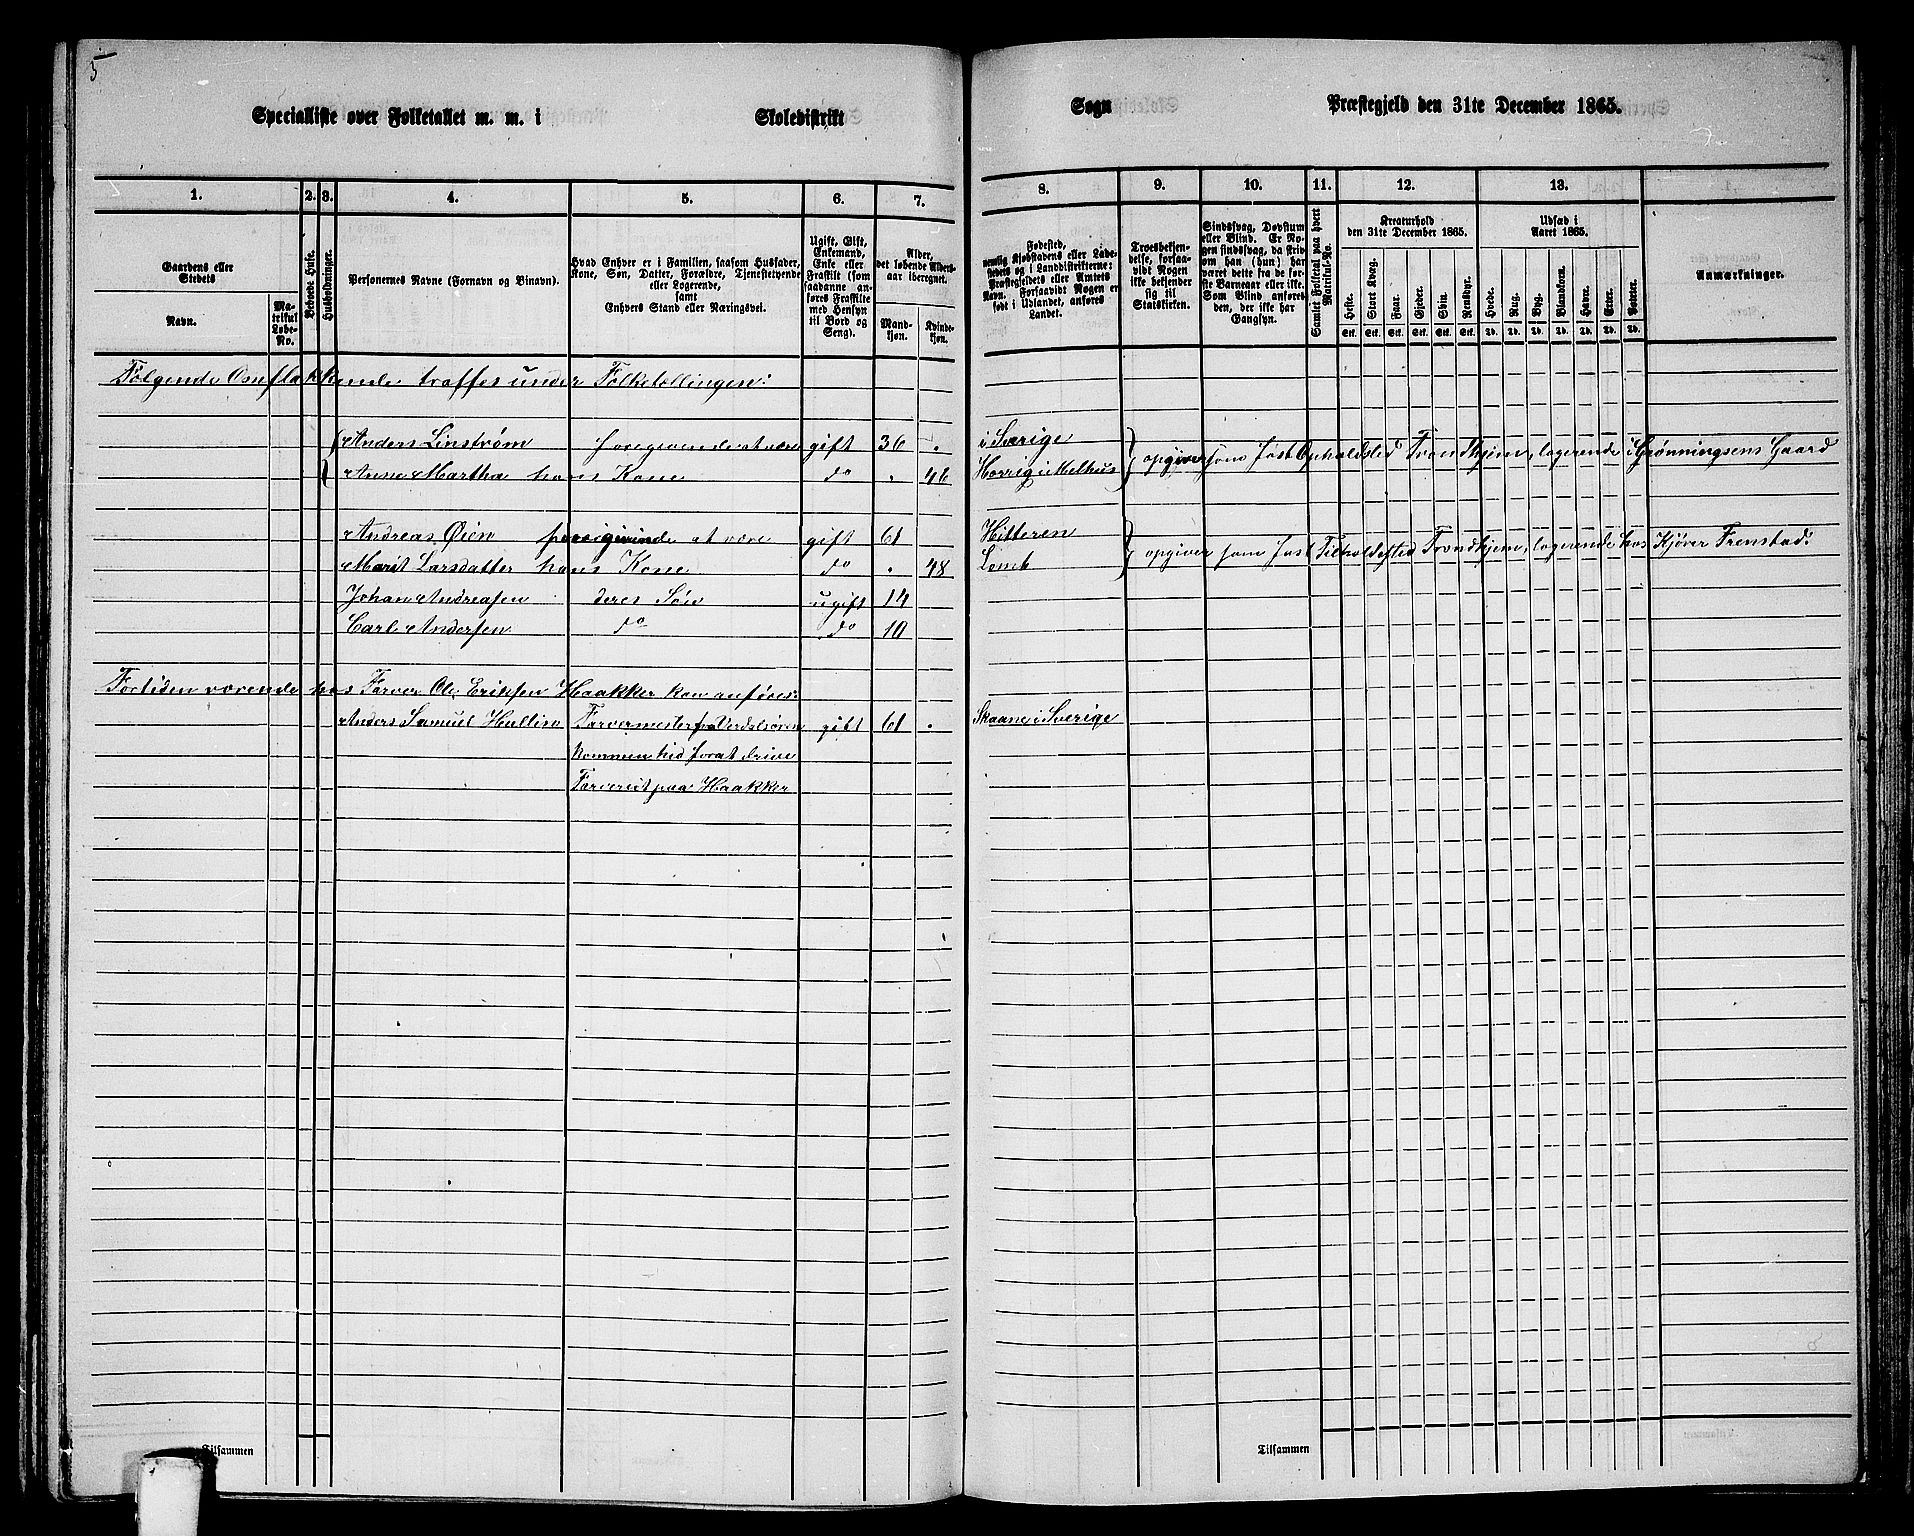 5
Specialliste over Folketallet m. m. i Skoledistrikt Sogn Præstegjeld den 31te December 1865.
1. 2. 3. 4. 5. 6. 7. 8. 9. 10. 11. 12. 13.
Gaardens eller Stedets
Navn.
Matrikul Løbe-No.
Beboede Huse.
Husholdninger.
Personernes Navne (Fornavn og Binavn).
Hvad Enhver er i Familien, saasom Husfader, Kone, Søn, Datter, Forældre, Tjenestetyende eller Logerende, samt Enhvers Stand eller Næringsvei.
Ugift, Gift, Enkemand, Enke eller Fraskilt (som saadanne anføres Fraskilte med Hensyn til Bord og Seng).
Alder, det løbende Aldersaar iberegnet.
Mandkjøn.
Kvindekjøn.
Fødested, nemlig Kjøbstadens eller Ladestedets og i Landdistrikterne: Præstegjeldets eller Amtets Navn. Forsaavidt Nogen er født i Udlandet, anføres Landet.
Troesbekjendelse, forsaavidt Nogen ikke bekjender sig til Statskirken.
Sindssvag, Døvstum eller Blind. Er Nogen sindssvag, da skrives om han (hun) har været dette fra de første Barneaar eller ikke. Som Blind anføres den, der ikke har Gangsyn.
Samlet Folketal paa hvert Matrikul-No.
Kreaturhold den 31te December 1865.
Heste. Stort Kvæg. Faar. Gjeder. Svin. Rensdyr.
Stk. Stk. Stk. Stk. Stk. Stk.
Udsæd i Aaret 1865.
Hvede. Rug. Byg. Blandkorn. Havre. Erter. Poteter.
Td. Td. Td. Td. Td. Td. Td.
Anmærkninger.
Følgende Omflakkende træffes under Folketællingen:
Anders Linstrøm foregivende at være gift 36 . i Sverige
Anne Martha hans Kone do . 46 Horrig i Melhus
opgiver som fast Opholdsted Trondhjem, logerende i Grønningsens Gaard
Andreas Øien foregivende at være gift 61 Hitteren
Marit Larsdatter hans Kone do . 48 Lomb
opgiver som fast Tilholdssted Trondhjem, logerende hos Kjører Frenstad.
Johan Andreasen deres Søn ugift 14
Carl Andersen do do 10
Fortiden værende hos Farver Ole Eriksen Haakker kan anføres:
Anders Samuel Hullin Farvermester fra Verdalsøren gift 61 . Skaane i Sverige
kommen hid for at drive
Farveriet paa Haakker
Tilsammen Tilsammen